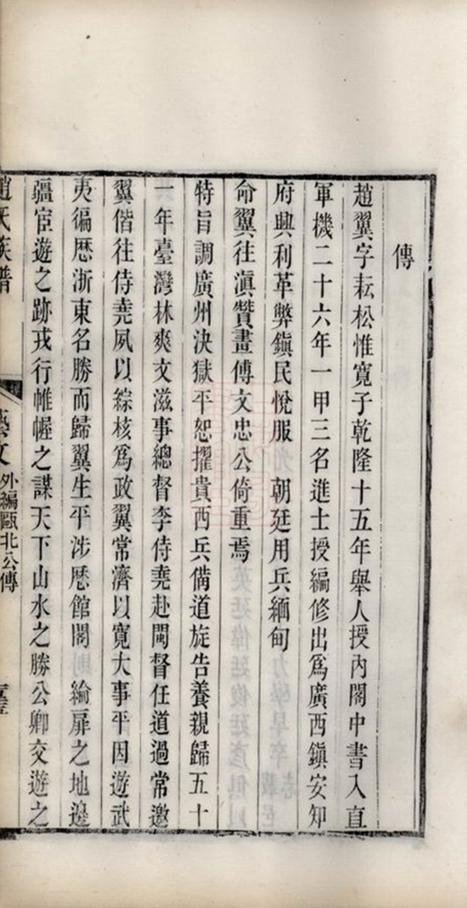 傳
趙翼字耘松惟寬子乾隆十五年舉人授內閣中書入直
軍機二十六年一甲三名進士授編修出爲廣西鎮安知
府興利革弊鎮民悅服 朝廷用兵緬甸
命翼往滇贊畫傅文忠公倚重焉
特旨調廣州決獄平恕擢貴西兵備道旋告養親歸五十
一年臺灣林爽文滋事總督李侍堯赴閩督任道過常邀
翼偕往侍堯夙以綜核爲政翼常濟以寬大事平因遊武
夷徧厯浙東名勝而歸翼生平涉厯館閣 綸扉之地邊
疆宦遊之跡戎行帷幄之謀天下山水之勝公卿交遊之
趙氏族譜
藝文外編甌北公傳